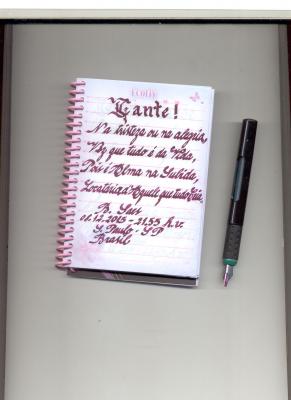 Cante!
Na tristeza ou na alegria,
Vez que tudo é da Vida,
Pois é Alma na Subida,
Locatória Aquele que tudo Cria,
B. Saes
01.12.2015 - 21,55 h.v.
S. Paulo - SP
Brasil